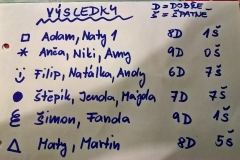 VÝSLEDKY
D = DOBŘE
Š = ŠPATNĚ
Adam, Naty 1 8D 1Š
Anča, Niki, Amy 9D 0Š
Filip, Natálka, Andy 6D 7Š
Štěpik, Jenda, Majda 7D 7Š
Šimon, Fanda 9D 1Š
Maty, Martin 8D 5Š